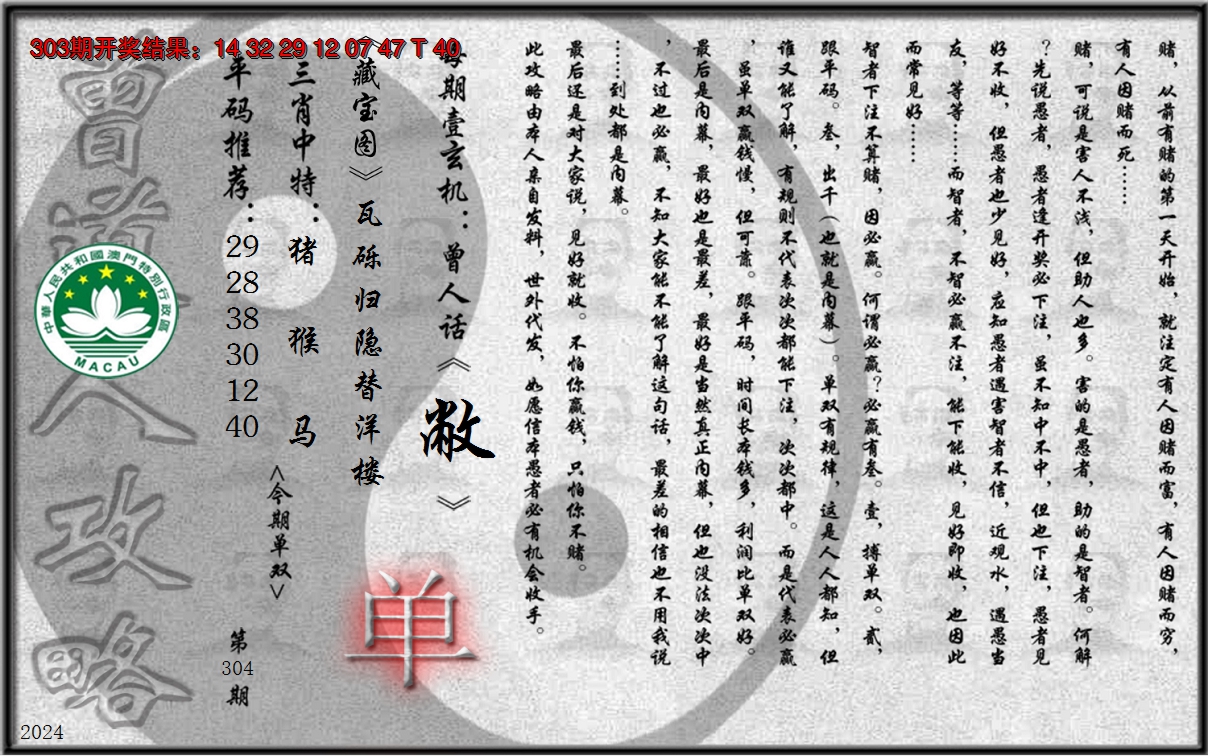 303期开奖结果：14 32 29 12 07 47 T 40
赌，从前有赌的第一天开始，就注定有人因赌而富，有人因赌而穷，
有人因赌而死……
赌，可说是害人不浅，但助人也多。害的是愚者，助的是智者。何解
？先说愚者，愚者逢开奖必下注，虽不知中不中，但也下注，愚者见
好不收，但愚者也少见好，应知愚者遇害智者不信，近观水，遇愚当
友，等等……而智者，不智必赢不注，能下能收，见好即收，也因此
而常见好……
智者下注不算赌，因必赢。何谓必赢？必赢有叁。壹，搏单双。贰，
跟平码。叁，出千（也就是内幕）。单双有规律，这是人人都知，但
谁又能了解，有规则不代表次次都能下注，次次都中。而是代表必赢
，虽单双赢钱慢，但可靠。跟平码，时间长本钱多，利润比单双好。
最后是内幕，最好也是最差，最好是当然真正内幕，但也没法次次中
，不过也必赢，不知大家能不能了解这句话，最差的相信也不用我说
……到处都是内幕。
最后还是对大家说，见好就收。不怕你赢钱，只怕你不赌。
此攻略由本人亲自发料，世外代发，如愿信本愚者必有机会收手。
每期壹玄机：曾人话《敝》
《藏宝图》瓦砾归隐替洋楼
单
三肖中特：猪 猴 马
<今期单双>
平码推荐：29 28 38 30 12 40
第304期
曾道人攻略
中華人民共和國澳門特別行政區
MACAU
2024